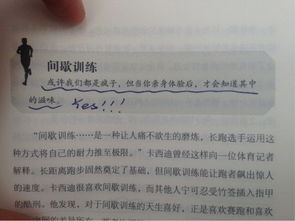 间歇训练
或许我们都是疯子，但当你亲身体验后，才会知道其中
的滋味。 Yes!!!
“间歇训练……是一种让人痛不欲生的磨炼，长跑选手运用这
种方式将自己的耐力推至极限。”卡西迪曾经这样向一位体育记者
解释。长距离跑步固然奠定了基础，但间歇训练能让跑者飙出惊人
的速度。卡西迪很喜欢间歇训练，而其他人宁可忍受竹签插入指甲
的酷刑。他发现，对于间歇训练的天生喜好，正是喜欢赛跑和喜欢